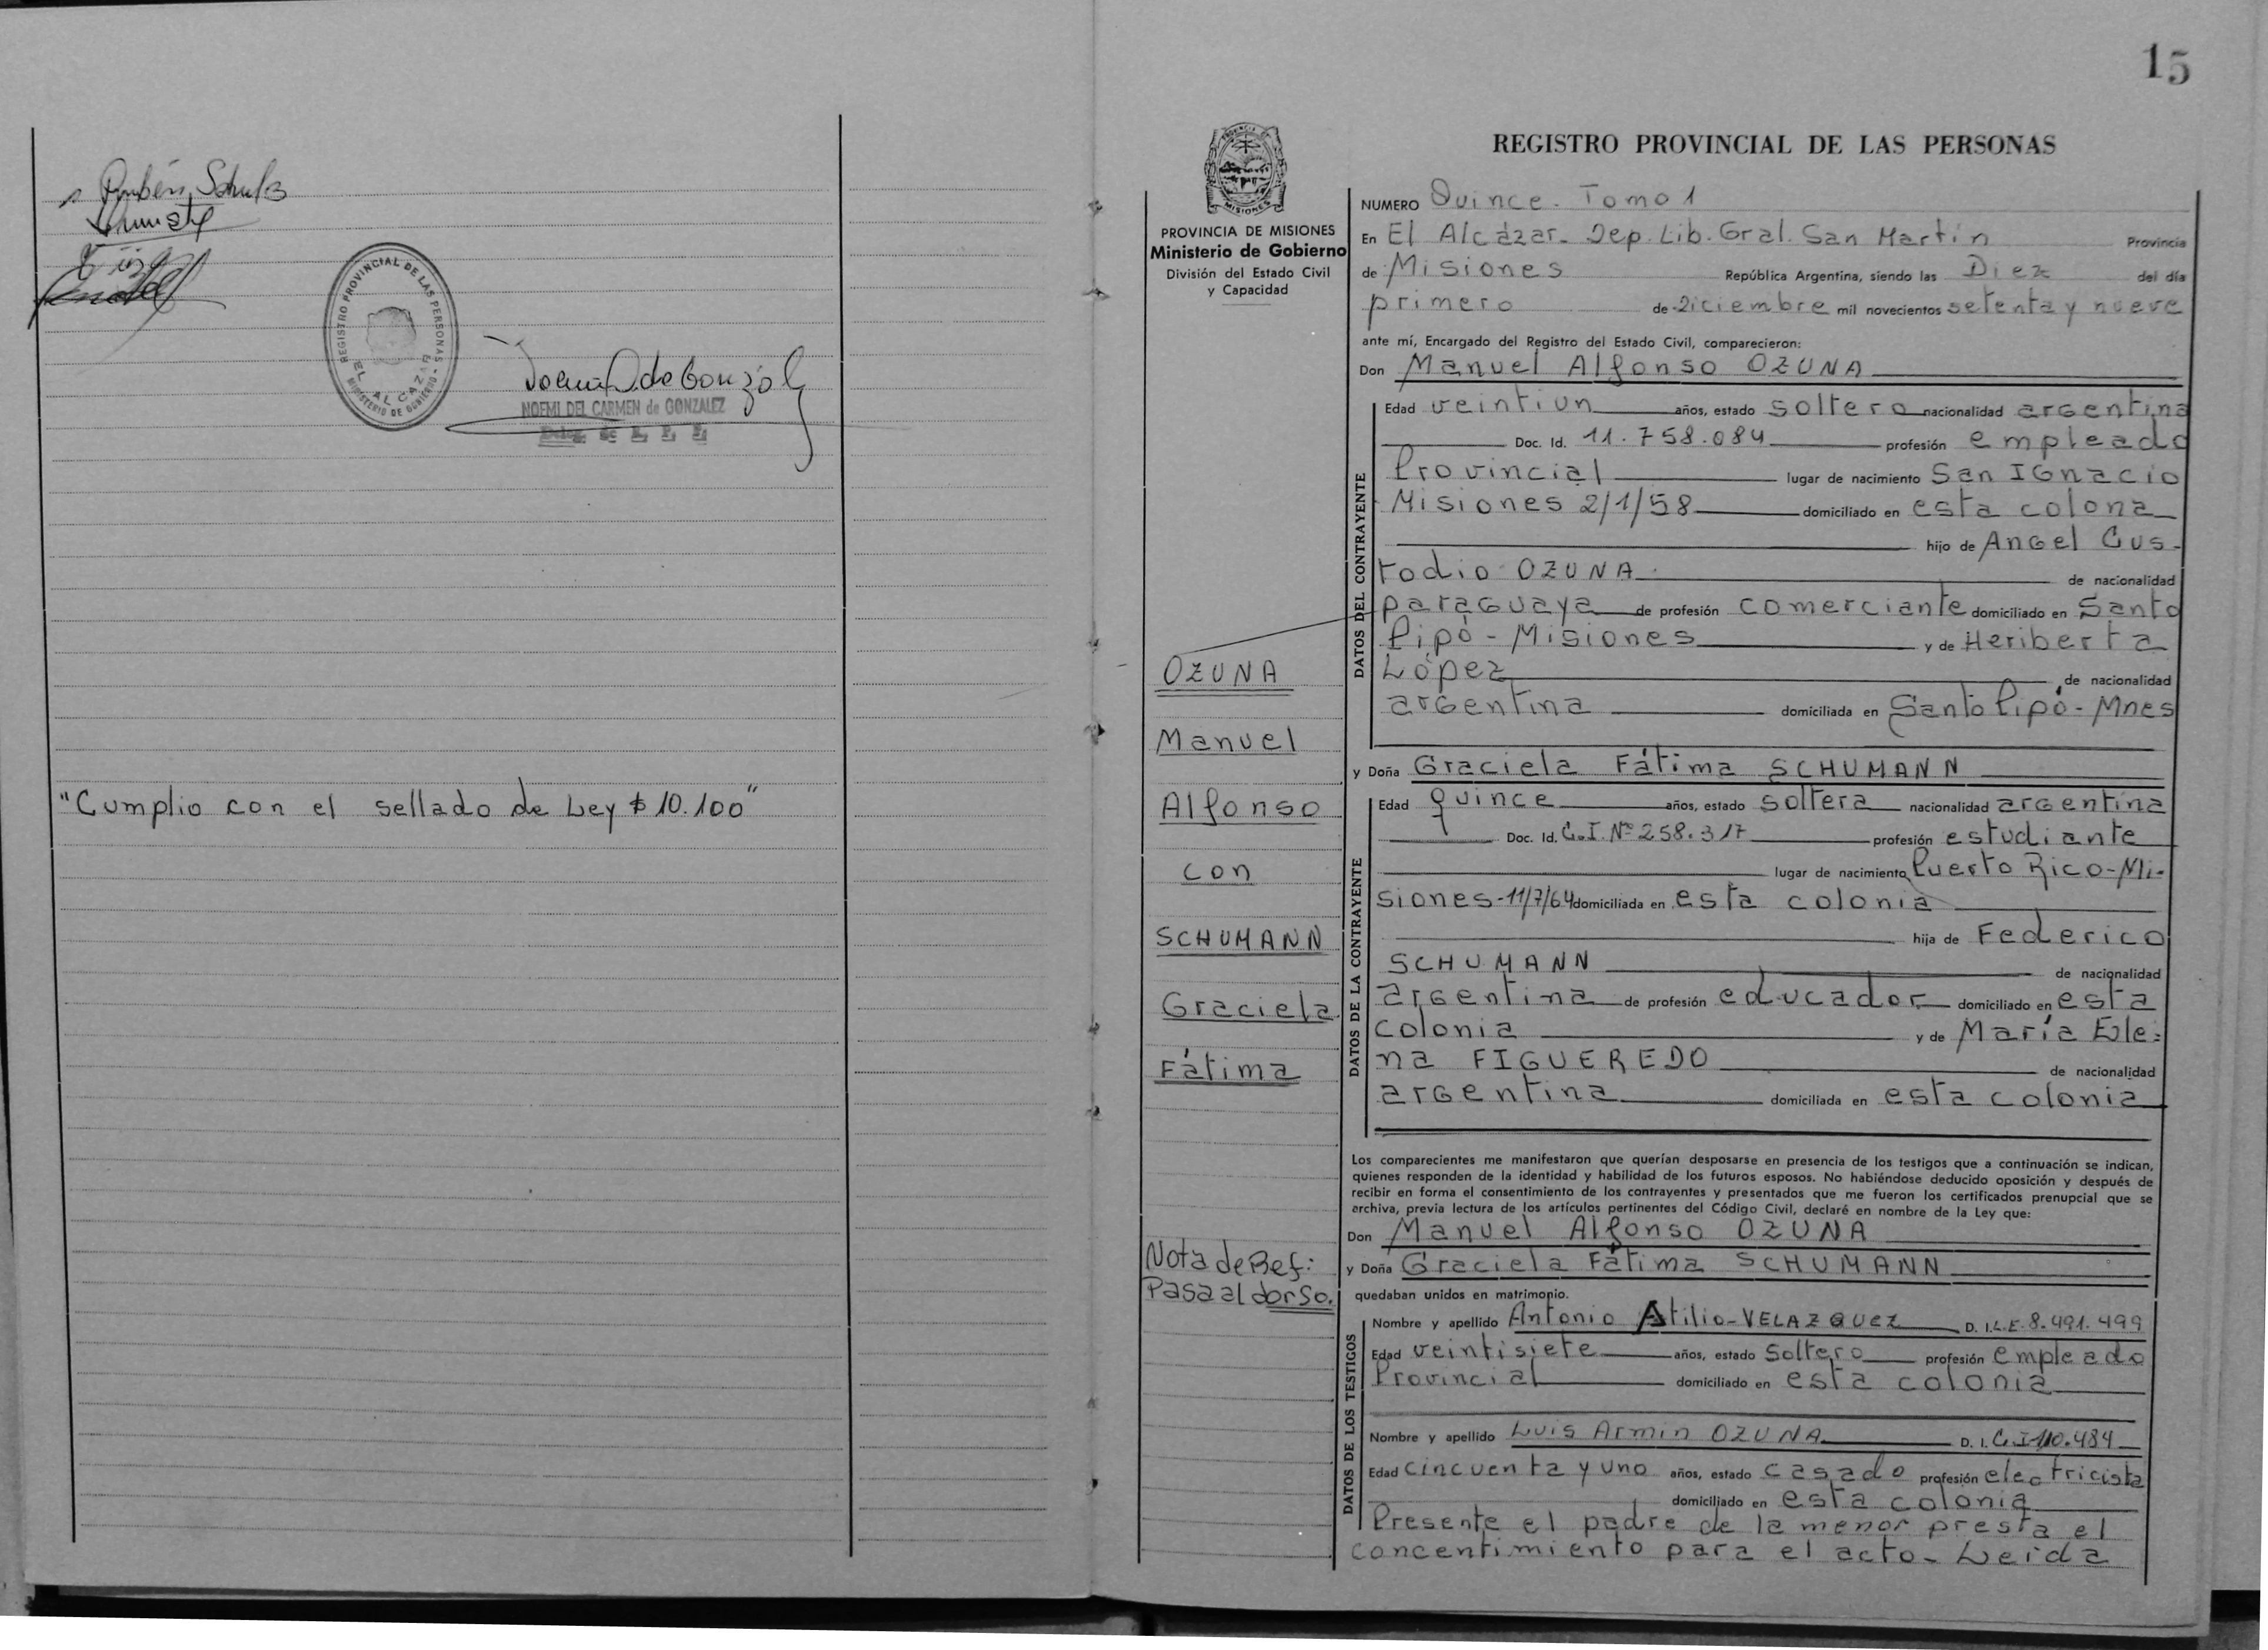 Rubén Schulz
REGISTRO PROVINCIAL DE LAS PERSONAS
EL ALCAZAR
MINISTERIO DE GOBIERNO
NOEMI DEL CARMEN de GONZALEZ
"Cumplio con el sellado de Ley $ 10.100"
15
PROVINCIA DE MISIONES
Ministerio de Gobierno
División del Estado Civil
y Capacidad
OZUNA
Manuel
Alfonso
con
SCHUMANN
Graciela
Fátima
Nota de Ref:
Pasa al dorso.
REGISTRO PROVINCIAL DE LAS PERSONAS
NUMERO Quince. Tomo 1
En El Alcázar. Dep. Lib. Gral. San Martín Provincia
de Misiones República Argentina, siendo las Diez del día
primero de Diciembre mil novecientos setenta y nueve
ante mí, Encargado del Registro del Estado Civil, comparecieron:
Don Manuel Alfonso OZUNA
DATOS DEL CONTRAYENTE
Edad veintiun años, estado soltero nacionalidad argentina
Doc. Id. 11.758.084 profesión empleado
Provincial lugar de nacimiento San Ignacio
Misiones 2/1/58 domiciliado en esta colona
hijo de Angel Cus-
todio OZUNA de nacionalidad
paraguaya de profesión comerciante domiciliado en Santo
Pipó - Misiones y de Heriberta
López de nacionalidad
argentina domiciliada en Santo Pipó - Mnes
y Doña Graciela Fátima SCHUMANN
DATOS DE LA CONTRAYENTE
Edad quince años, estado soltera nacionalidad argentina
Doc. Id. C.I. Nº 258.317 profesión estudiante
lugar de nacimiento Puerto Rico-Mi-
siones-11/7/64 domiciliada en esta colonia
hija de Federico
SCHUMANN de nacionalidad
argentina de profesión educador domiciliado en esta
colonia y de María Ele-
na FIGUEREDO de nacionalidad
argentina domiciliada en esta colonia
Los comparecientes me manifestaron que querían desposarse en presencia de los testigos que a continuación se indican,
quienes responden de la identidad y habilidad de los futuros esposos. No habiéndose deducido oposición y después de
recibir en forma el consentimiento de los contrayentes y presentados que me fueron los certificados prenupcial que se
archiva, previa lectura de los artículos pertinentes del Código Civil, declaré en nombre de la Ley que:
Don Manuel Alfonso OZUNA
y Doña Graciela Fátima SCHUMANN
quedaban unidos en matrimonio.
DATOS DE LOS TESTIGOS
Nombre y apellido Antonio Atilio-VELAZQUEZ D. I. L.E. 8.491.499
Edad veintisiete años, estado soltero profesión empleado
Provincial domiciliado en esta colonia
Nombre y apellido Luis Armin OZUNA D. I. C.I 110.484
Edad cincuenta y uno años, estado casado profesión electricista
domiciliado en esta colonia
Presente el padre de la menor presta el
concentimiento para el acto. Leida